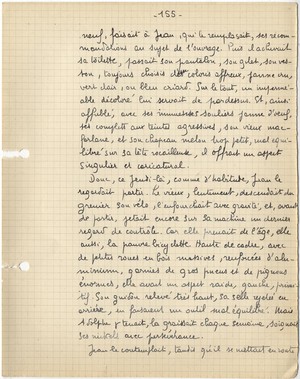 - 155 -
neuf, faisait à Jean, qui le remplaçait, ses recom-
mandations au sujet de l'ouvrage. Puis il achevait
sa toilette, passait son pantalon, son gilet, son ves-
ton, toujours choisis de coloris affreux, jaune cru,
vert clair, ou bleu criard. Sur le tout, un imperméa-
ble décoloré lui servait de pardessus. Et, ainsi
affublé, avec ses immenses souliers jaune d'oeuf,
ses complets aux teintes agressives, son vieux mac-
farlane, et son chapeau melon trop petit, mal équi-
libré sur sa tête, il offrait un aspect
singulier et caricatural.
Donc, ce jeudi-là, comme d'habitude, Jean le
regardait partir. Le vieux, lentement, descendait du
grenier son vélo, l'enfourchait avec gravité, et, avant
de partir, jetait encore sur sa machine un dernier
regard de contrôle. Car elle prenait de l'âge, elle
aussi, la pauvre bicyclette. Haute de cadre, avec
de petites roues en bois massives, renforcées d'alu-
minium, garnies de gros pneus et de pignons
énormes, elle avait un aspect raide, gauche, primi-
tif. Son guidon relevé très haut, sa selle rejetée en
arrière, en faisaient un outil mal équilibré. Mais
Adolphe y tenait, la graissait chaque semaine, soignait
ses nickels avec persévérance.
Jean le contemplait, tandis qu'il se mettait en route